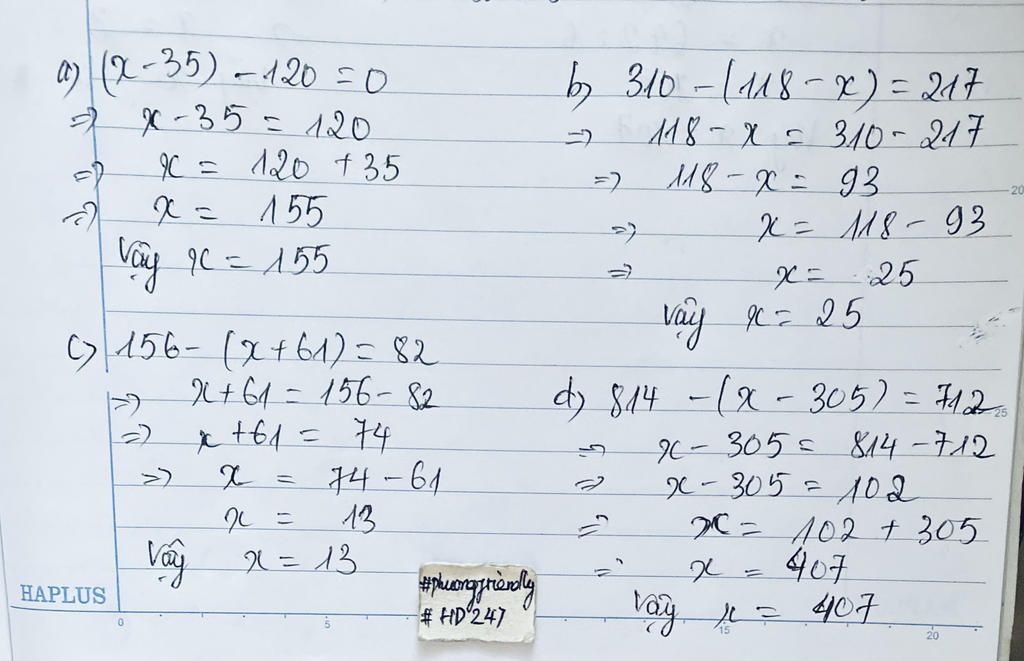 a) (x - 35) - 120 = 0
=> x - 35 = 120
=> x = 120 + 35
=> x = 155
Vậy x = 155
b) 310 - (118 - x) = 217
=> 118 - x = 310 - 217
=> 118 - x = 93
=> x = 118 - 93
=> x = 25
Vậy x = 25
c) 156 - (x + 61) = 82
=> x + 61 = 156 - 82
=> x + 61 = 74
=> x = 74 - 61
x = 13
Vậy x = 13
d) 814 - (x - 305) = 712
=> x - 305 = 814 - 712
=> x - 305 = 102
=> x = 102 + 305
=> x = 407
Vậy x = 407
#phuongfriendly
# HD 247
HAPLUS
0 5 15 20
20
25